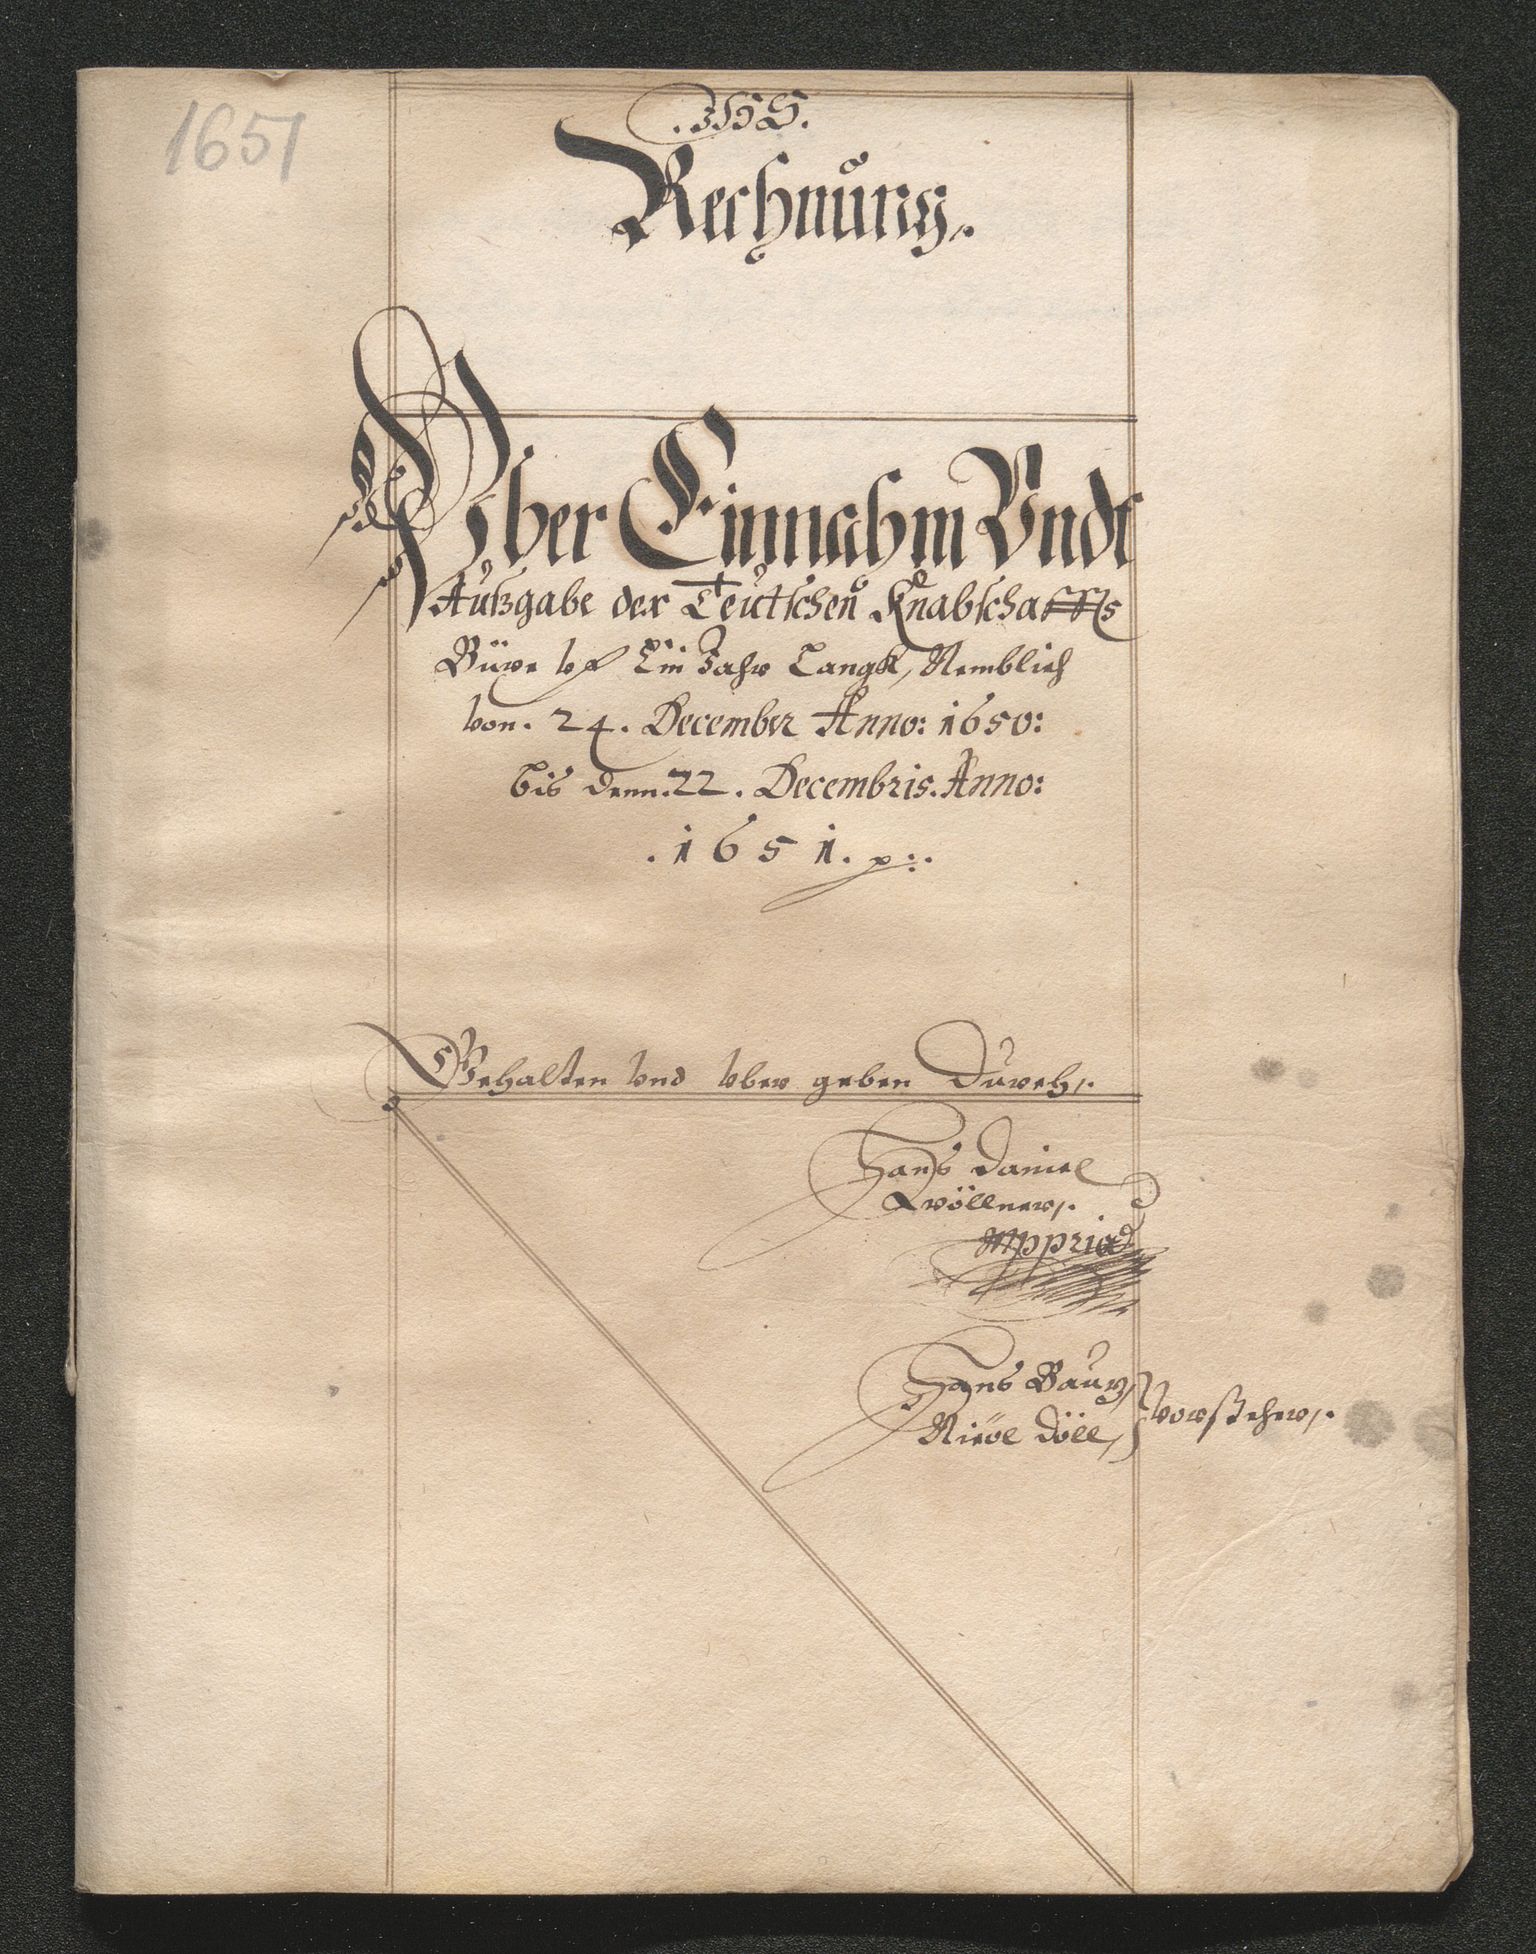 1651
.JHS.
Rechnung.
Vber Einnahm Vndt
Außgabe der Teutschen Knabschaffts
Büxe vf Ein Jahr Langk, Nemblich
von. 24. December Anno: 1650:
bis denn. 22. Decembris. Anno:
.1651. p:.
Gehalten vnd vber geben Durch,.
Hans Daniel
Mppria
Hans Baur,
Döll, } vorsteher,.